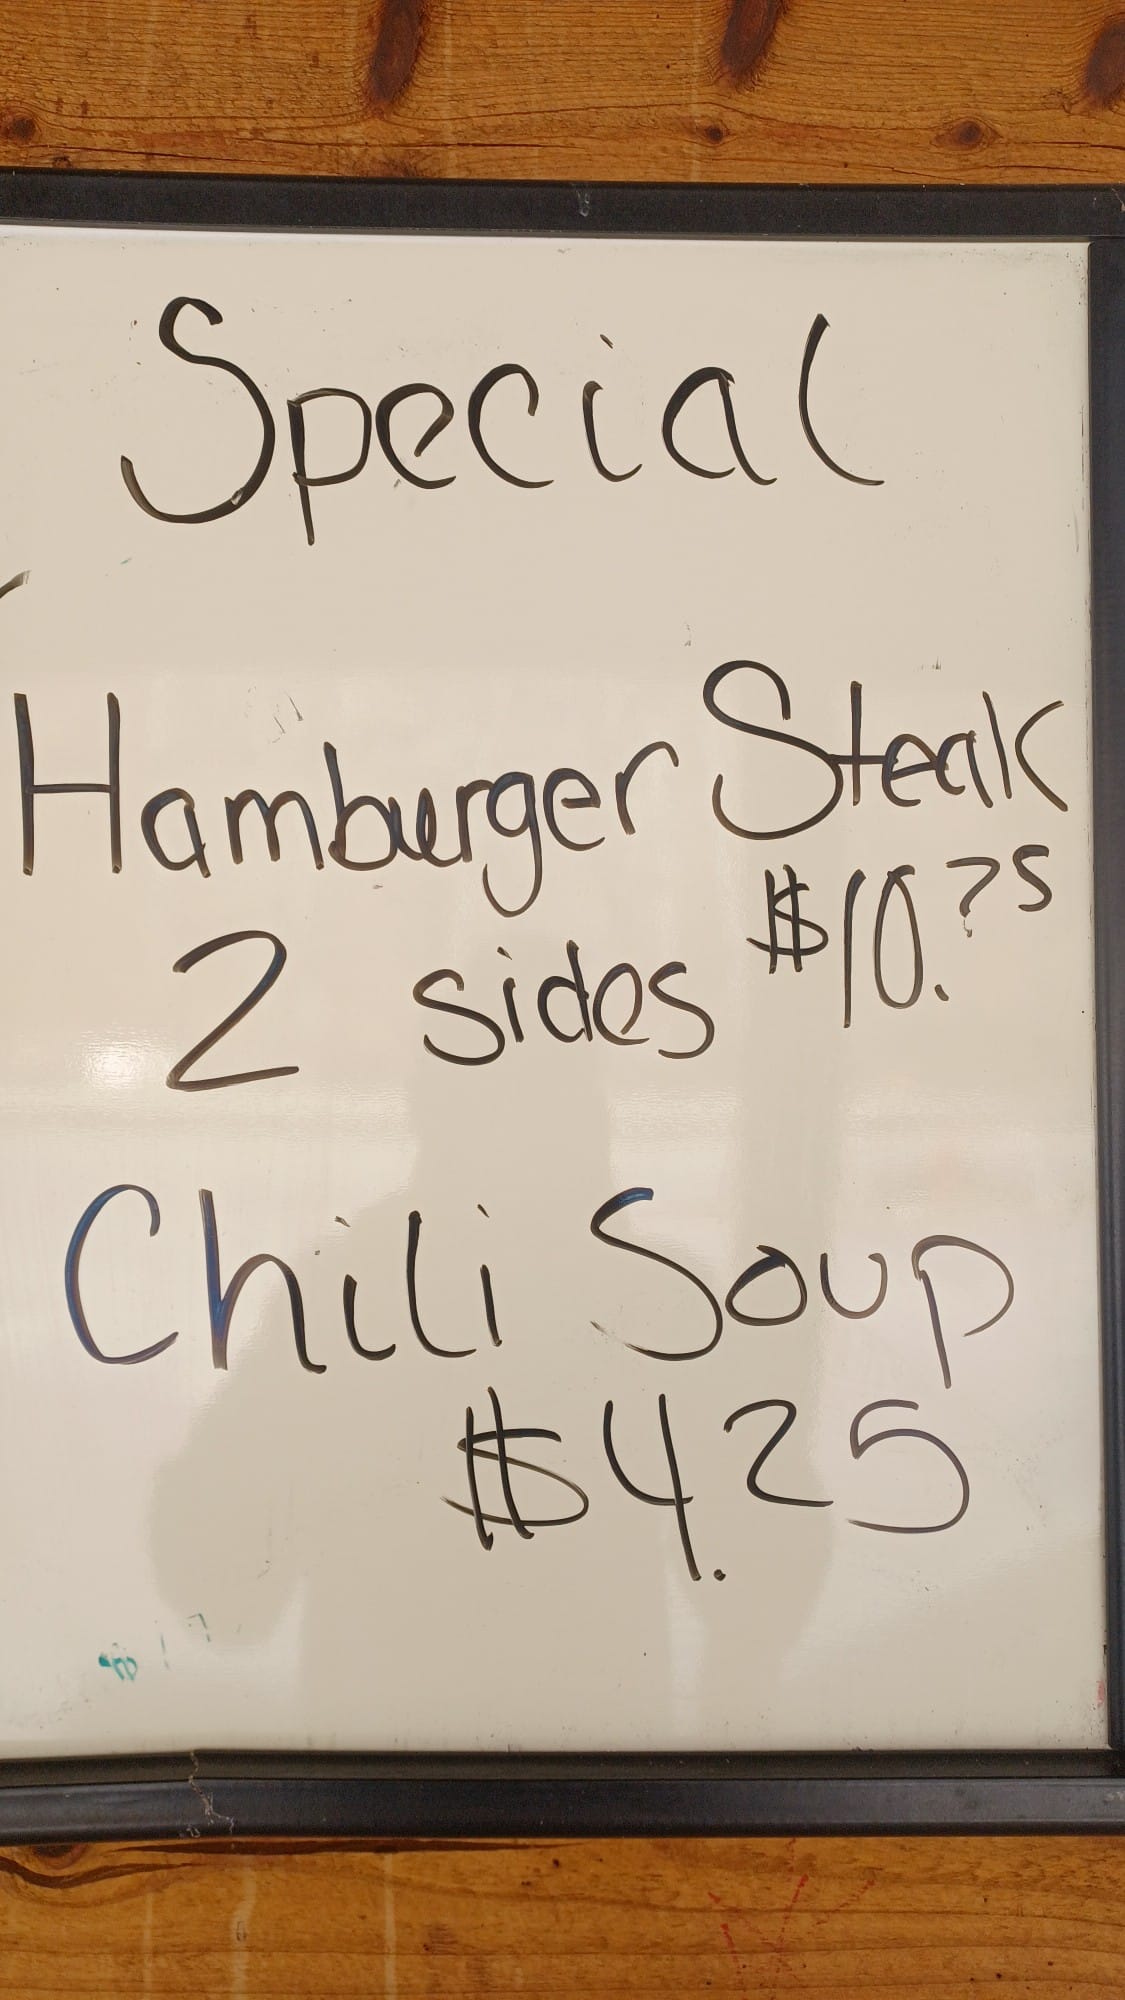 Special
Hamburger Steak
2 sides $10.75
Chili Soup
$4.25